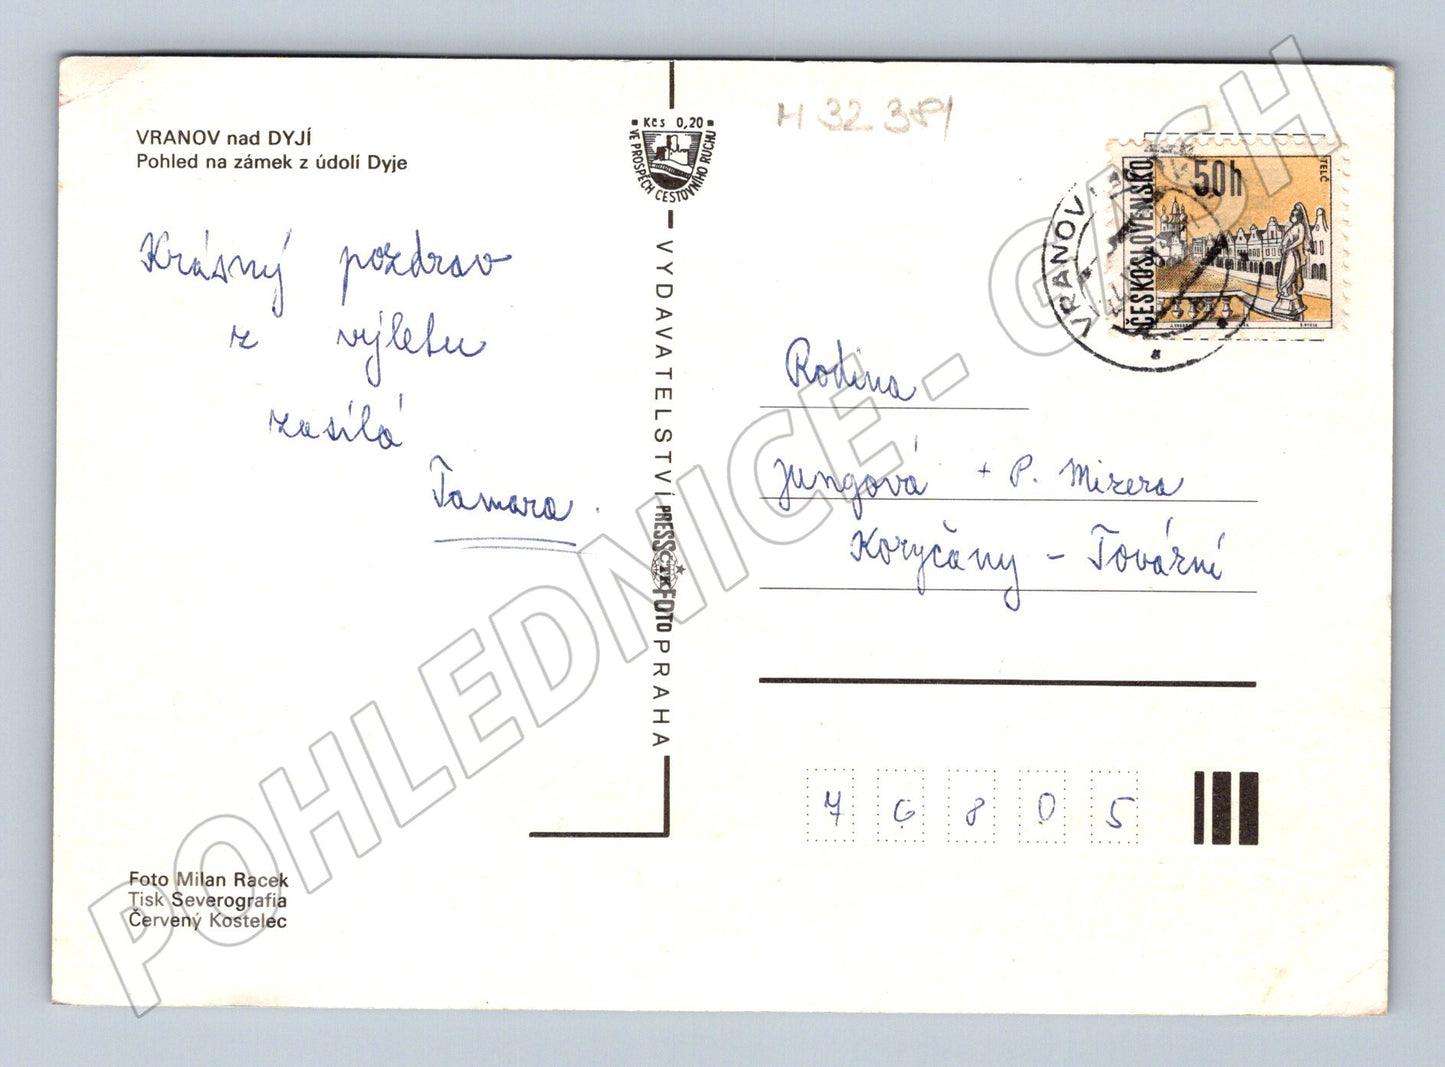 VRANOV nad DYJÍ
Pohled na zámek z údolí Dyje
Krásný pozdrav
z výletu
zasílá
Tamara
Foto Milan Racek
Tisk Severografia
Červený Kostelec
Kčs 0,20
VE PROSPĚCH CESTOVNÍHO RUCHU
VYDAVATELSTVÍ PRESSFOTO PRAHA
ČTK
M 32 381
ČESKOSLOVENSKO
50h
TELČ
VRANOV
Rodina
Jungová + P. Mizera
Koryčany - Tovární
76805
POHLEDNICE - CASH